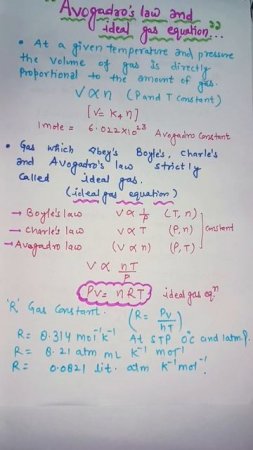 "Avogadro's law and
ideal gas equation"...
• At a given temperature and pressure
the volume of gas is directly
Proportional to the amount of gas.
V ∝ n (P and T constant)
[V = K4n]
1 mole = 6.022×10²³ Avogadro Constant
• Gas which obey's Boyle's, charle's
and Avogadro's law strictly
Called ideal gas.
(ideal gas equation)
→ Boyle's law V ∝ 1/P (T, n)
→ Charle's law V ∝ T (P, n) constant
→ Avogadro law (V ∝ n) (P, T)
V ∝ nT/P
PV = nRT ideal gas eqⁿ
'R' Gas Constant. (R = PV/nT)
R = 8.314 mol⁻¹ k⁻¹ At STP 0°C and 1atm P.
R = 8.21 atm mL K⁻¹ mol⁻¹
R = 0.0821 lit. atm K⁻¹ mol⁻¹.